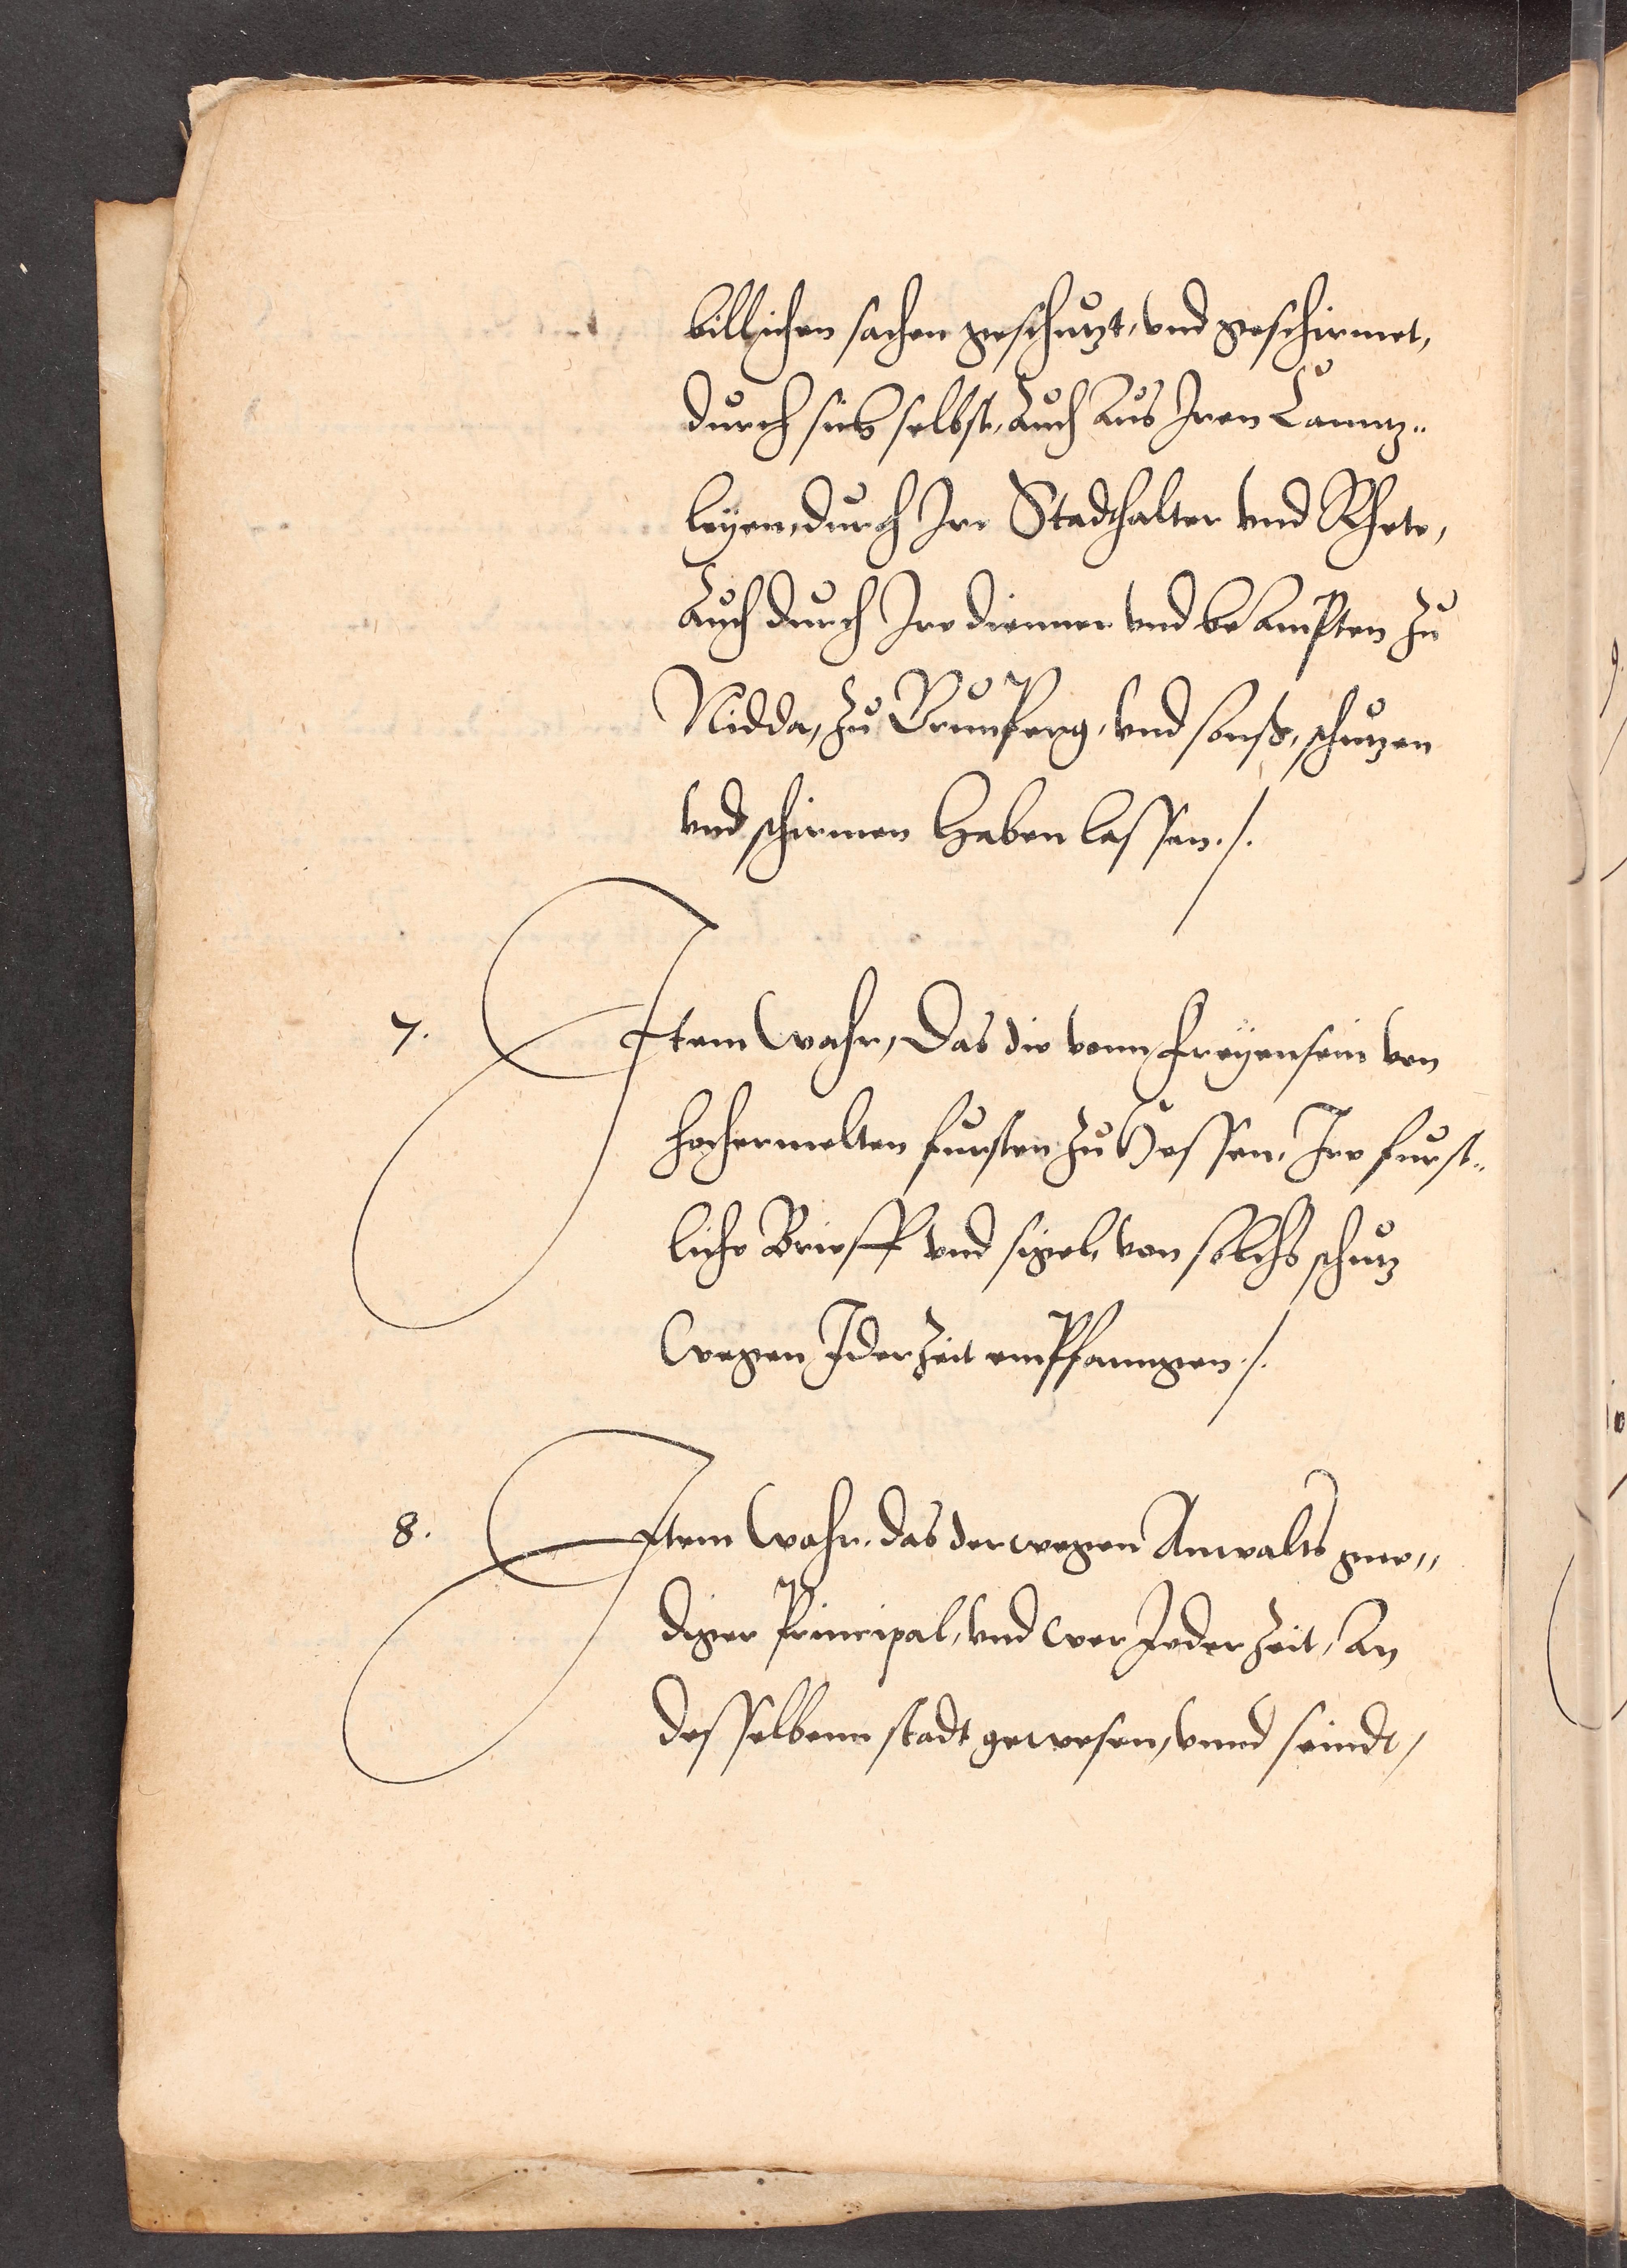 billichen sachen geschutzt, vnd geschirmet,
durch sich selbst, Auch aus Iren Canntz„
leyen, durch Ire Stadthalter vnd Rhete,
Auch durch Ire dienner vnd beampten zu
Nidda, zu Grunperg, vnd sonst, schutzen
vnd schirmen haben lassen ./.
7. Item Wahr, Das die vonn freyensein von
hochermelten fursten zu Hessen, Ire furst„
liche Brieff vnd sigel, von solchs schutz
wegen Ider Zeit empfanngen ./.
8. Item Wahr, das derwegen Anwalts gne„
diger Principal, vnd wer Ieder Zeit, An
desselbenn stadt gewesen, vnnd seindt,